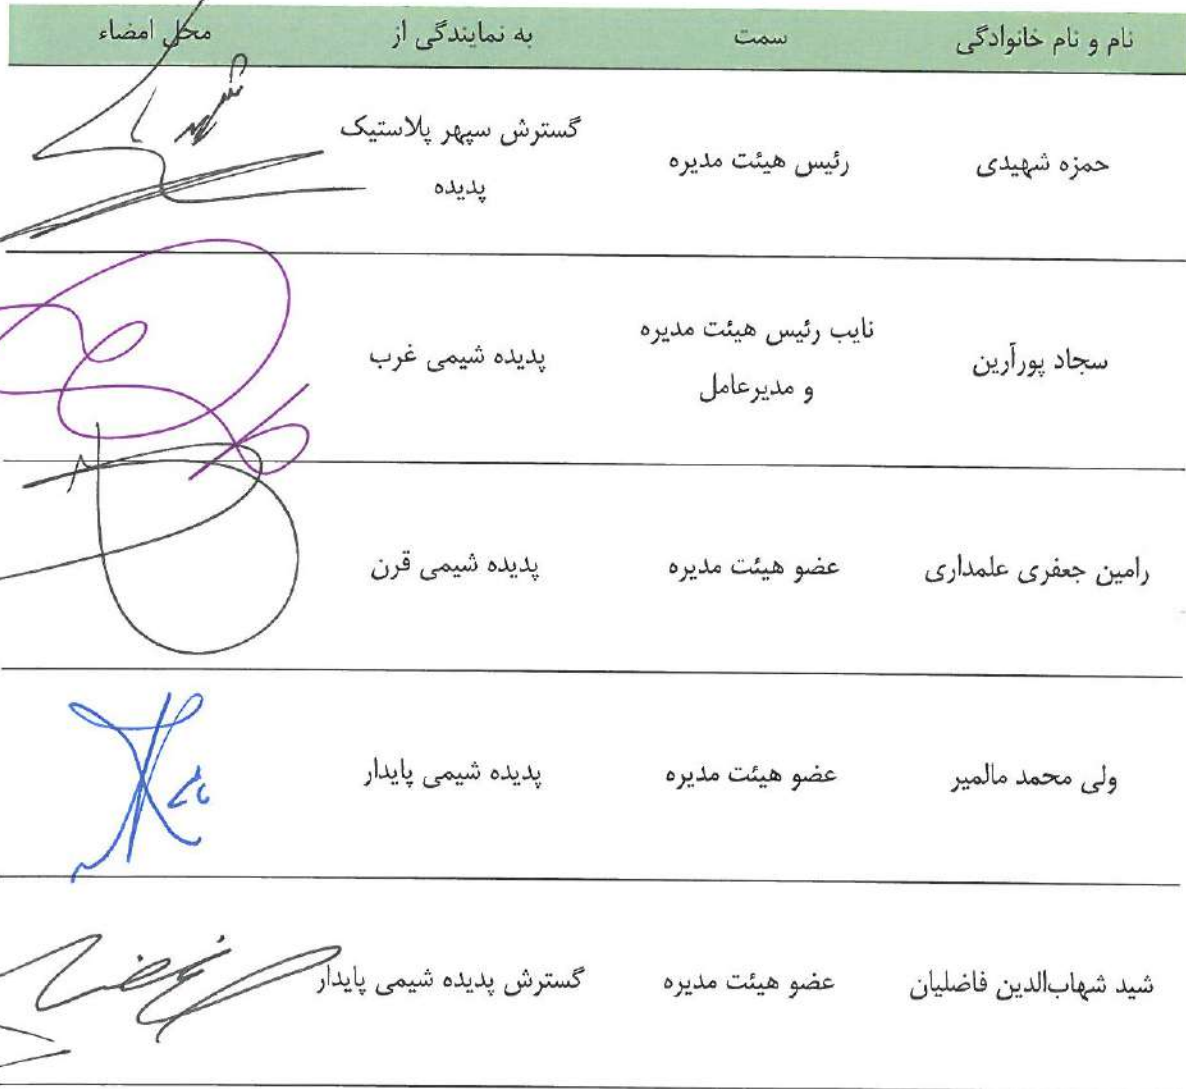 نام و نام خانوادگی سمت به نمایندگی از محل امضاء
حمزه شهیدی رئیس هیئت مدیره گسترش سپهر پلاستیک
پدیده
سجاد پورآرین نایب رئیس هیئت مدیره پدیده شیمی غرب
و مدیرعامل
رامین جعفری علمداری عضو هیئت مدیره پدیده شیمی قرن
ولی محمد مالمیر عضو هیئت مدیره پدیده شیمی پایدار
شید شهاب‌الدین فاضلیان عضو هیئت مدیره گسترش پدیده شیمی پایدار